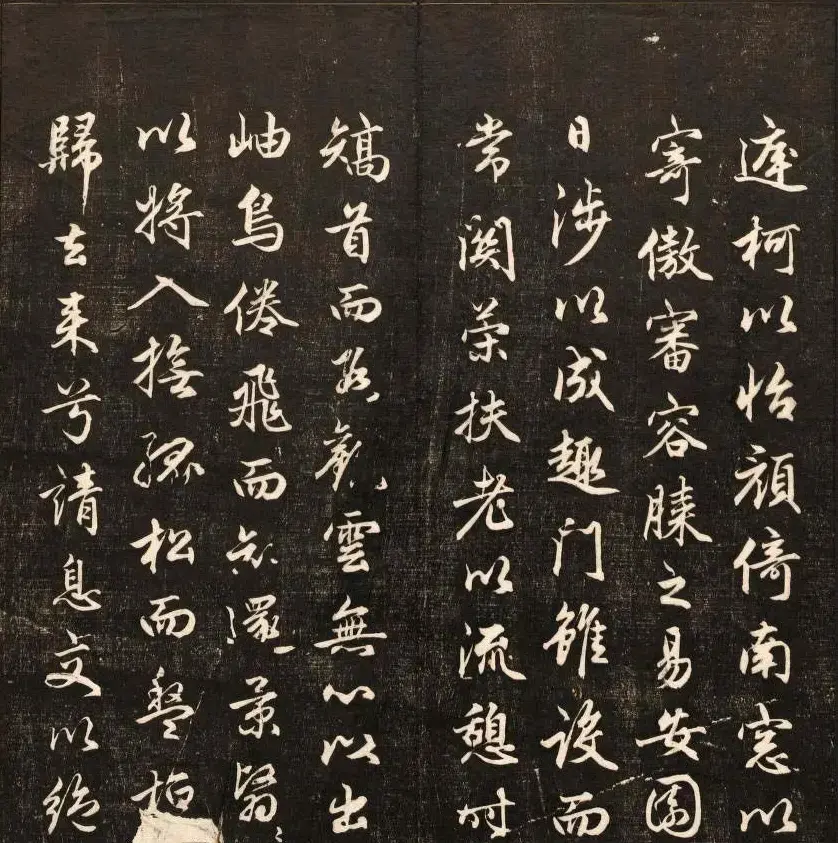 庭柯以怡顔倚南窓以
寄傲審容膝之易安園
日涉以成趣門雖設而
常関策扶老以流憩时
矯首而遐觀雲無心以出
岫鳥倦飛而知還景翳〻
以將入撫孤松而盤桓
歸去来兮請息交以絶